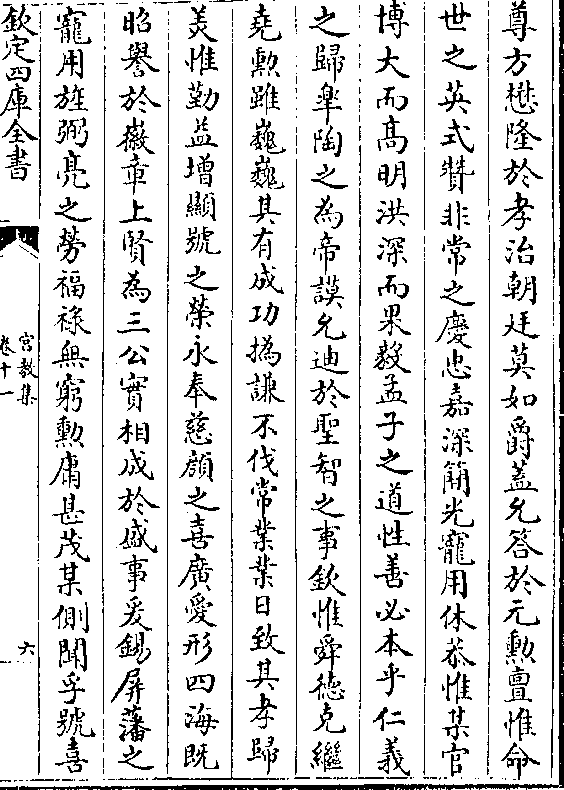 尊方懋隆於孝治朝廷莫如爵蓋允答於元勲亶惟命
世之英式贊非常之慶忠嘉深簡光寵用休恭惟某官
博大而髙明洪深而果毅孟子之道性善必本乎仁義
之歸臯陶之為帝謨允迪於聖智之事欽惟舜德克繼
堯勲雖巍巍其有成功撝謙不伐常業業日致其孝歸
美惟勤益增顯號之榮永奉慈顔之喜廣愛形四海既
昭譽於徽章上賢為三公實相成於盛事爰錫屏藩之
寵用旌弼亮之勞福禄無窮勲庸甚茂某側聞孚號喜
欽定四庫全書
宫教集
卷十一
六